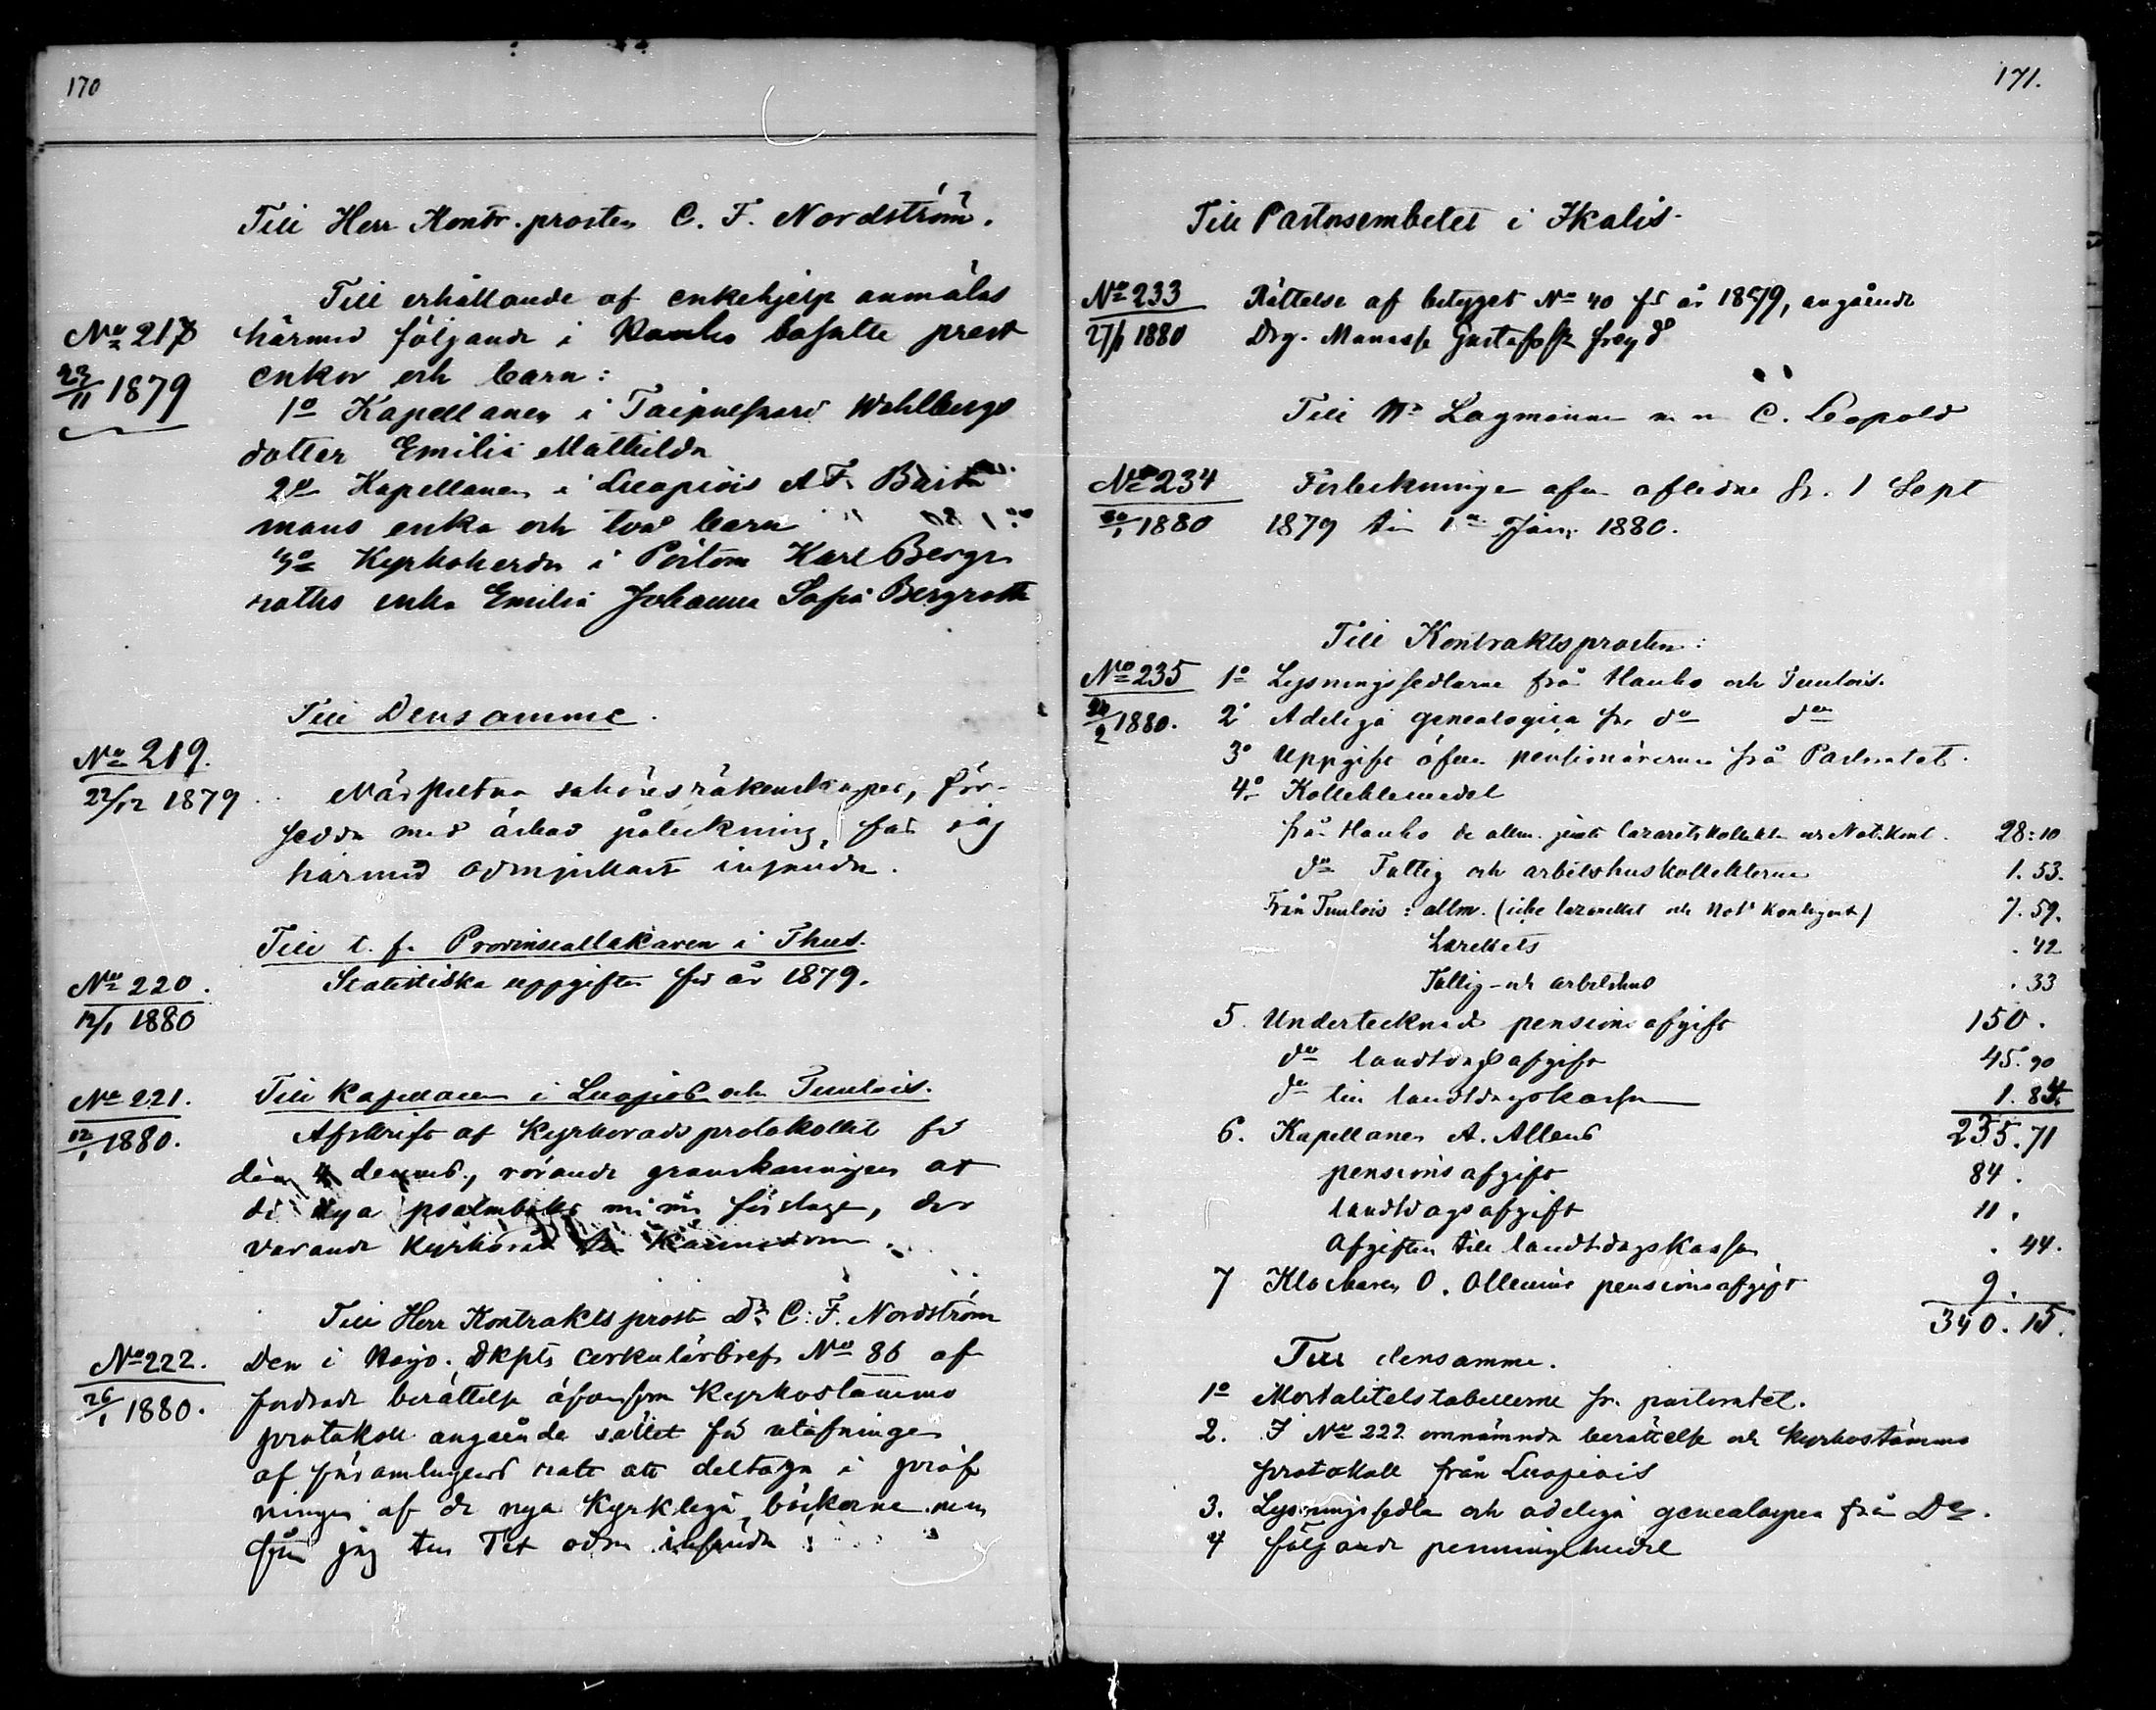 170
Till Herr Kontr. prosten C. F. Nordström.
Till erhållande af enkehjelp anmälas
No 218 härmed följande i Hauho bosatte prest
23/11 1879 enkor och barn:
1o Kapellanen i Taipalsaari Wahlbergs
dotter Emilia Mathilda
2o Kapellanen i Luopiois A F.
mans enka och två barn
3o Kyrkoherden i Pörtom Karl Berg
roths enka Emilia Johanna Sofia Bergroth
Till Densamme.
No 219.
22/12 1879
räkenskaper, för-
sedda med påteckning, får jag
härmed ödmjukast insända.
Till t. f. Provinsialläkaren i Thus.
No 220. Statistiska uppgifter för år 1879.
12/1 1880
No 221. Till Kapellanen i Luopiois och Tuulois.
12/1 1880. Afskrift af Kyrkorådsprotokollet för
den 4 dennes, rörande granskningen af
de nya psalmboks förslagen, der
varande Kyrkoråd till kännedom.
Till Herr Kontraktsprosten Dr C. F. Nordström
No 222. Den i Högv. Dkpts cirkulärbref No 86 af
26/1 1880. fordrade berättelse äfvensom Kyrkostämmo
protokoll angående sättet för utöfningen
af församlingens rätt att deltaga i pröf
ningen af de nya Kyrkliga böckerne
får jag till Tit ödm. insända
171.
Till Pastorsembetet i Ikalis.
No 233 Rättelse af betyget No 40 för år 1879, angående
27/1 1880 Drg. Manasse Gustafsson
Till Hr Lagmannen m. m. C. Leopold
No 234 Förteckningen öfver aflidne fr. 1 Sept
30/1 1880 1879 till 1 Jan. 1880.
Till Kontraktsprosten:
No 235 1o Lysningssedlarne från Hauho och Tuulois.
24/2 1880. 2o Adeliga genealogier fr. do do
3o Uppgift öfver pensionärerne från Pastoratet.
4o Kollektmedel
från Hauho de allm. jemte lazaretskollekten och Not. Kont. 28:10
do Fattig och arbetshuskollekterne 1.53.
Från Tuulois: allm. (icke lazarettet och Not. Kontigent) 7.59.
Lazarettets .42
Fattig- och arbetshus .33
5. Undertecknads pensionsafgift 150.
do landtdagsafgift 45.90
do till landtdagskassan 1.84.
6. Kapellanen A. Allens 235.71
pensionsafgift 84.
landtdagsafgift 11.
Afgiften till landtdagskassan .44.
7 Klockaren O. Ollenius pensionsafgift 9.
340.15.
Till densamme.
1o Mortalitetstabellerne fr. pastoratet.
2. I No 222 omnämnda berättelse och Kyrkostämmo
protokoll från Luopiois
3. Lysningssedlar och adeliga genealogier från Do.
4 följande penningemedel